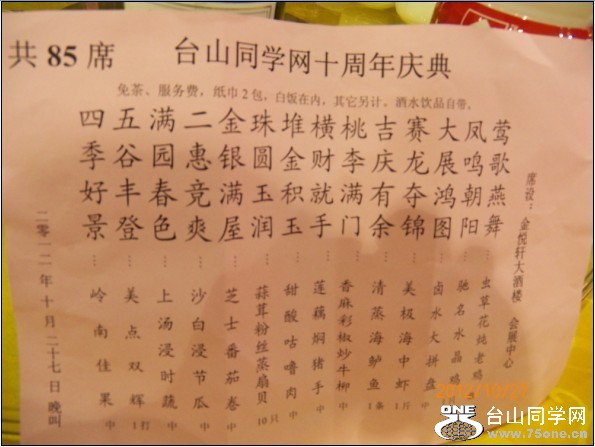 共 85 席
台山同学网十周年庆典
免茶、服务费，纸巾2包，白饭在内，其它另计。酒水饮品自带。
席设：金悦轩大酒楼 会展中心
莺歌燕舞 … 虫草花炖老鸡
凤鸣朝阳 … 驰名水晶鸡
大展鸿图 … 卤水大拼盘 中
赛龙夺锦 … 美极海中虾 1斤
吉庆有余 … 清蒸海鲈鱼 1条
桃李满门 … 香麻彩椒炒牛柳 中
横财就手 … 莲藕焖猪手 中
堆金积玉 … 甜酸咕噜肉 中
珠圆玉润 … 蒜茸粉丝蒸扇贝 10只
金银满屋 … 芝士番茄卷 中
二惠竞爽 … 沙白浸节瓜 中
满园春色 … 上汤浸时蔬 中
五谷丰登 … 美点双辉 1打
四季好景 … 岭南佳果 中
二零一二年十月二十七日晚叫
ONE
台山同学网
www.75one.cn